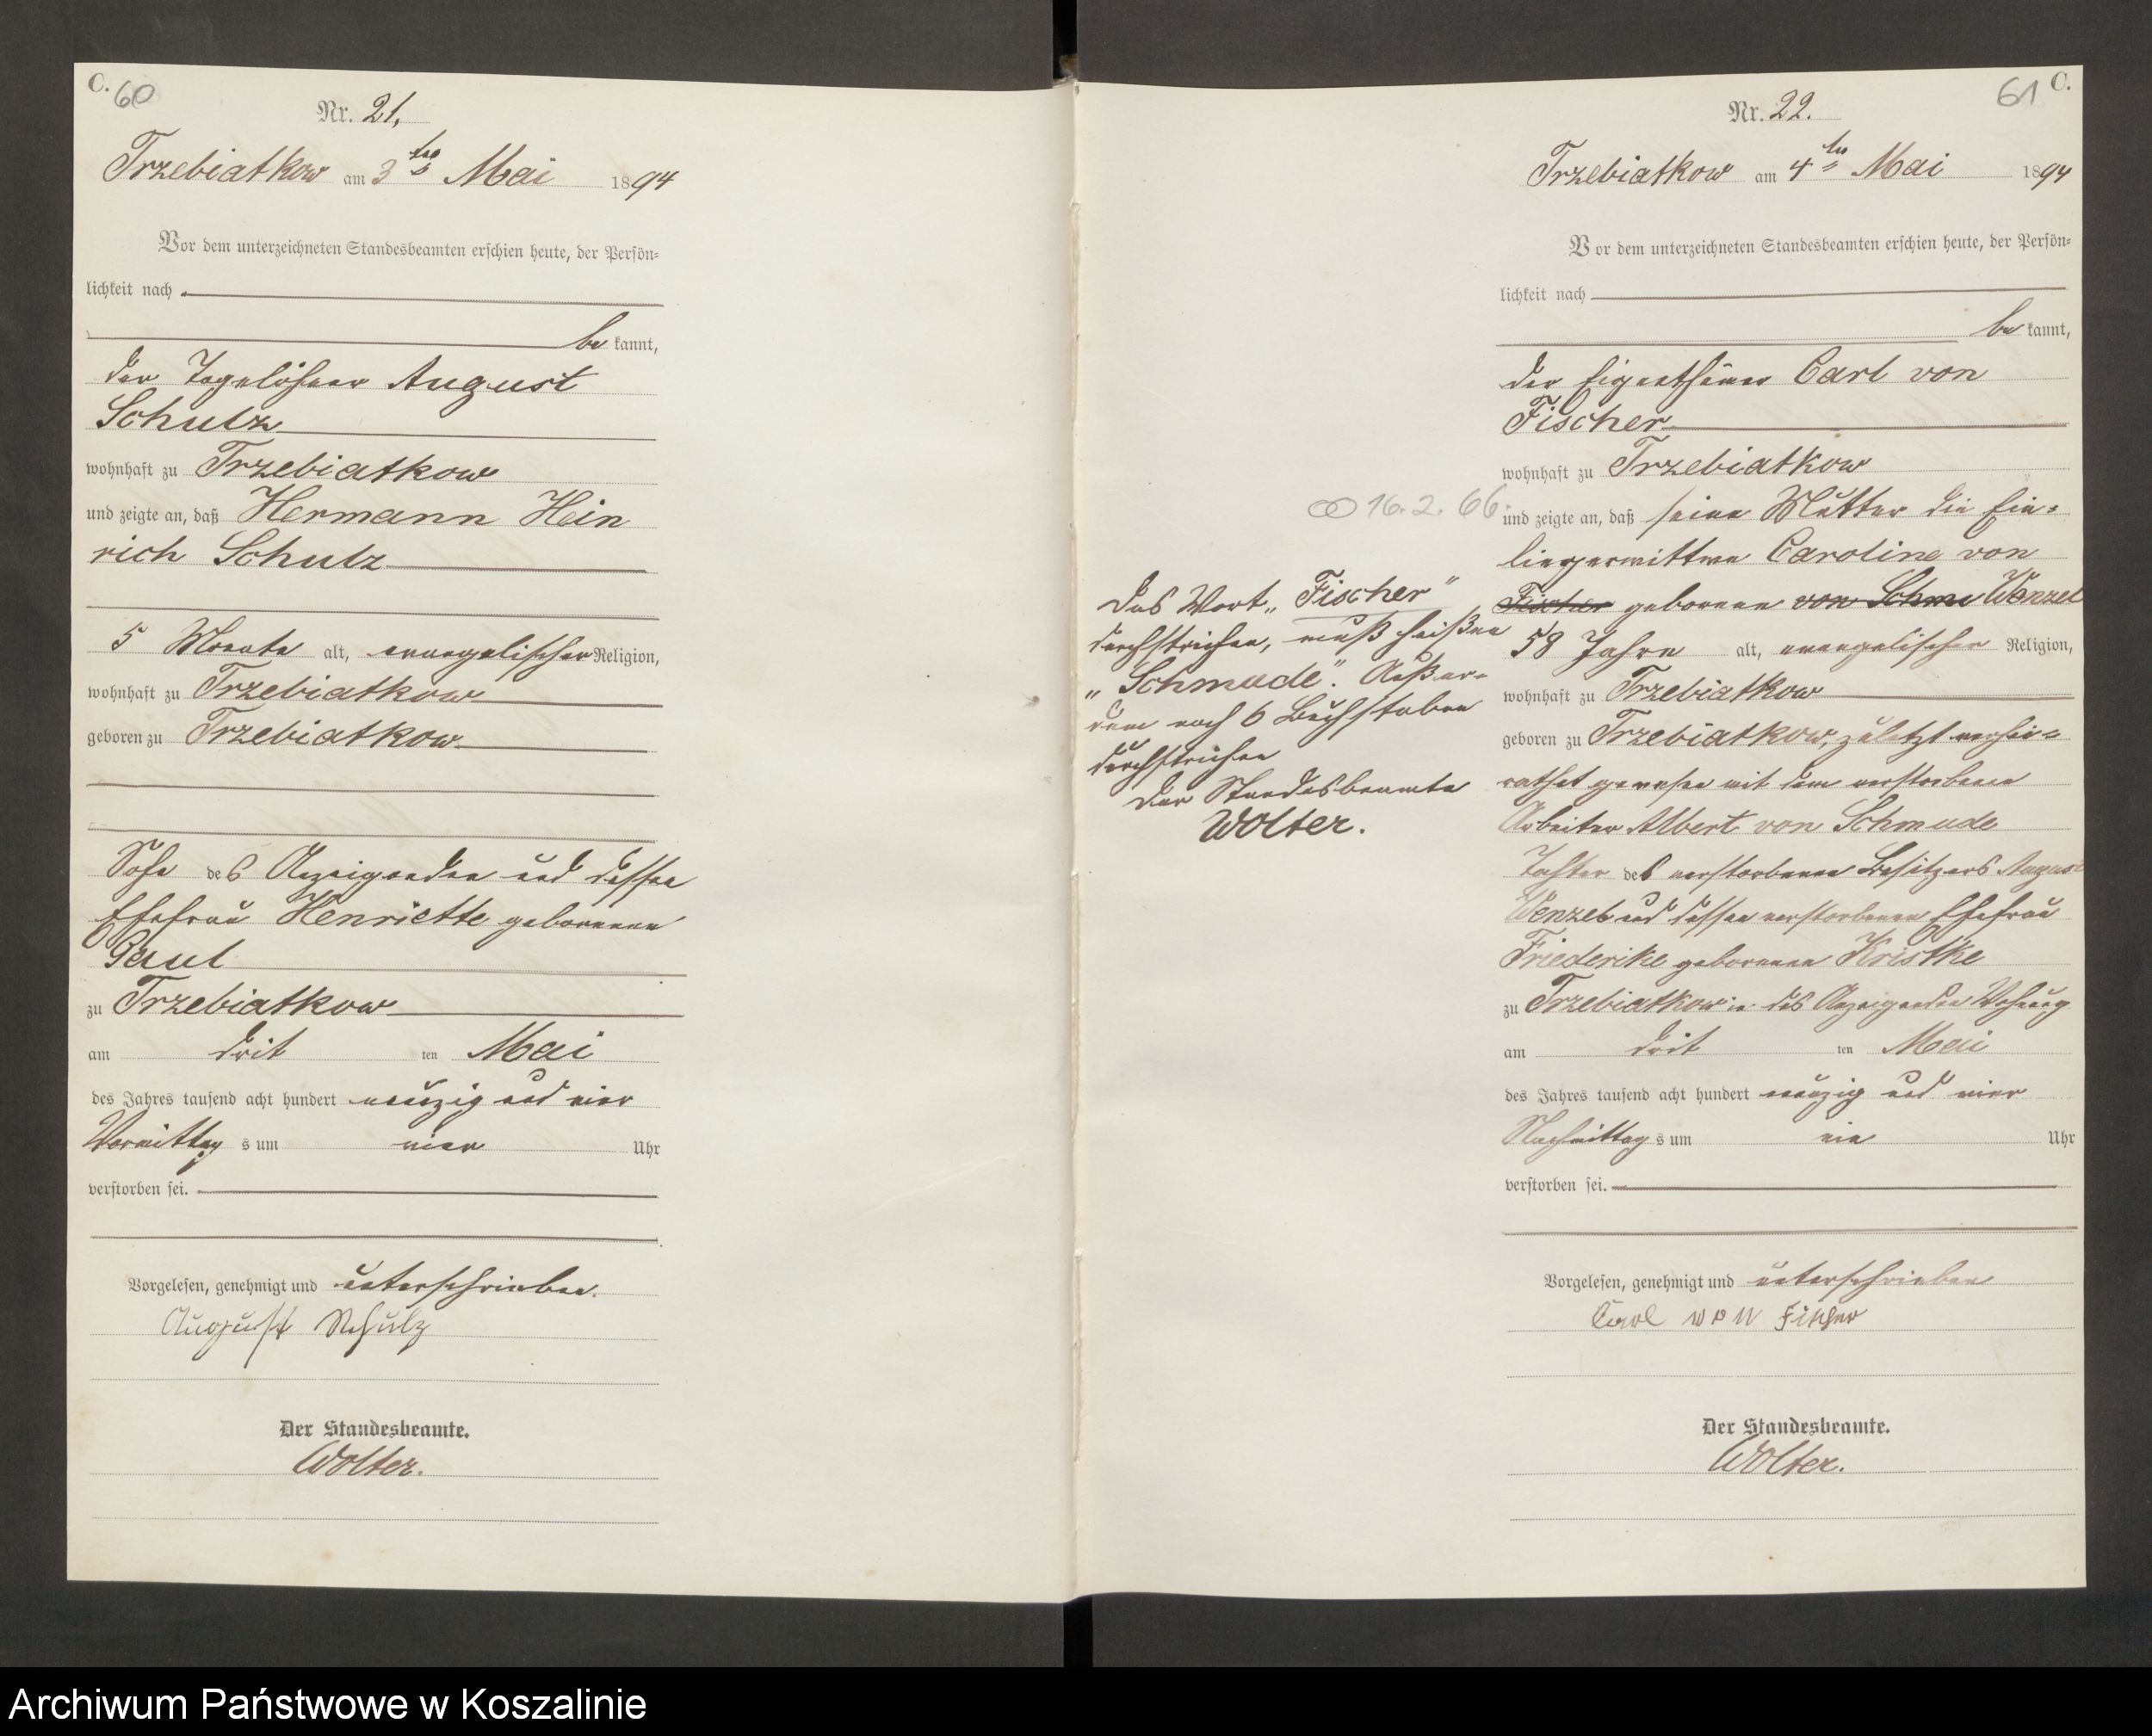 C. 60
Nr. 21.
Trzebiatkow am 3ten Mai 1894
Vor dem unterzeichneten Standesbeamten erschien heute, der Persön-
lichkeit nach
be kannt,
der Tagelöhner August
Schulz
wohnhaft zu Trzebiatkow
und zeigte an, daß Hermann Hein
rich Schulz
5 Monate alt, evangelischer Religion,
wohnhaft zu Trzebiatkow
geboren zu Trzebiatkow
Sohn des Anzeigenden und dessen
Ehefrau Henriette geborenen
Gaul
zu Trzebiatkow
am drit ten Mai
des Jahres tausend acht hundert neunzig und vier
Vormittag s um vier Uhr
verstorben sei.
Vorgelesen, genehmigt und unterschrieben.
August Schulz
Der Standesbeamte.
Wolter.
61 C.
Nr. 22.
Trzebiatkow am 4ten Mai 1894
Vor dem unterzeichneten Standesbeamten erschien heute, der Persön-
lichkeit nach
be kannt,
der Eigenthümer Carl von
Fischer
wohnhaft zu Trzebiatkow
und zeigte an, daß seine Mutter die Ein-
liegerwittwe Caroline von
Fischer geborene von Schmu Wenzel
58 Jahre alt, evangelischer Religion,
wohnhaft zu Trzebiatkow
geboren zu Trzebiatkow, zuletzt verhei-
rathet gewesen mit dem verstorbenen
Arbeiter Albert von Schmude
Tochter des verstorbenen Besitzers August
Wenzel und dessen verstorbenen Ehefrau
Friederike geborenen Kristke
zu Trzebiatkow in des Anzeigenden Wohnung
am drit ten Mai
des Jahres tausend acht hundert neunzig und vier
Nachmittag s um ein Uhr
verstorben sei.
Vorgelesen, genehmigt und unterschrieben
Carl von Fischer
Der Standesbeamte.
Wolter.
∞ 16.2.66
Das Wort „Fischer"
durchstrichen, muß heißen
„Schmude". Außer-
dem noch 6 Buchstaben
durchstrichen
Der Standesbeamte
Wolter.
Archiwum Państwowe w Koszalinie